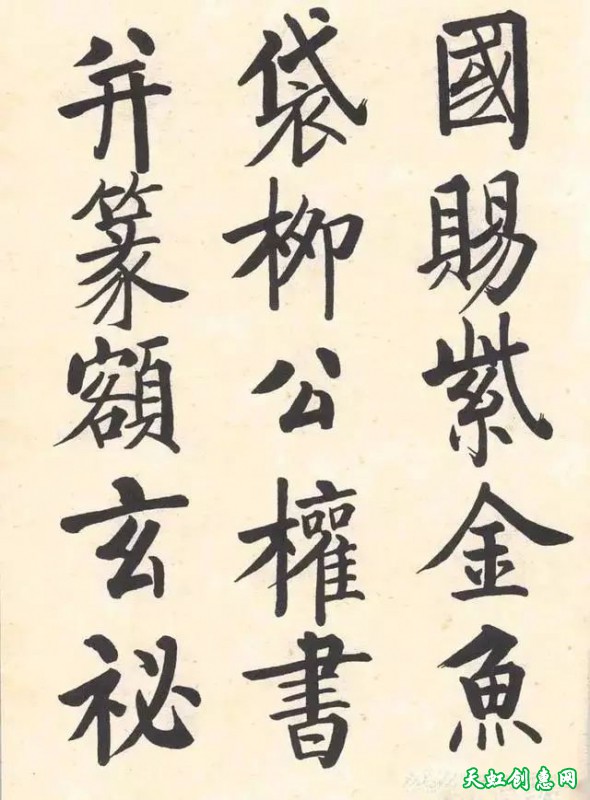 國賜紫金魚
袋柳公權書
并篆額玄祕
天虹创惠网